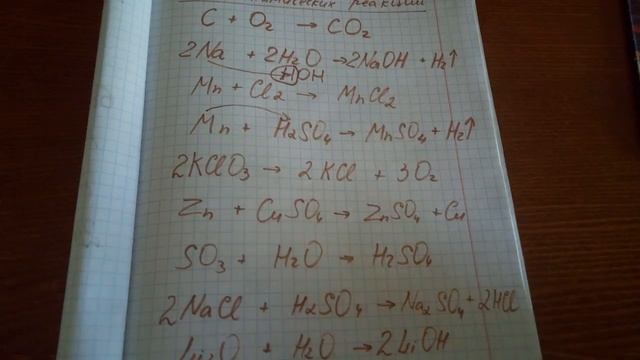 реакции
C + O₂ → CO₂
2Na + 2H₂O → 2NaOH + H₂↑
HOH
Mn + Cl₂ → MnCl₂
Mn + H₂SO₄ → MnSO₄ + H₂↑
2KClO₃ → 2KCl + 3O₂
Zn + CuSO₄ → ZnSO₄ + Cu
SO₃ + H₂O → H₂SO₄
2NaCl + H₂SO₄ → Na₂SO₄ + 2HCl
Li₂O + H₂O → 2LiOH